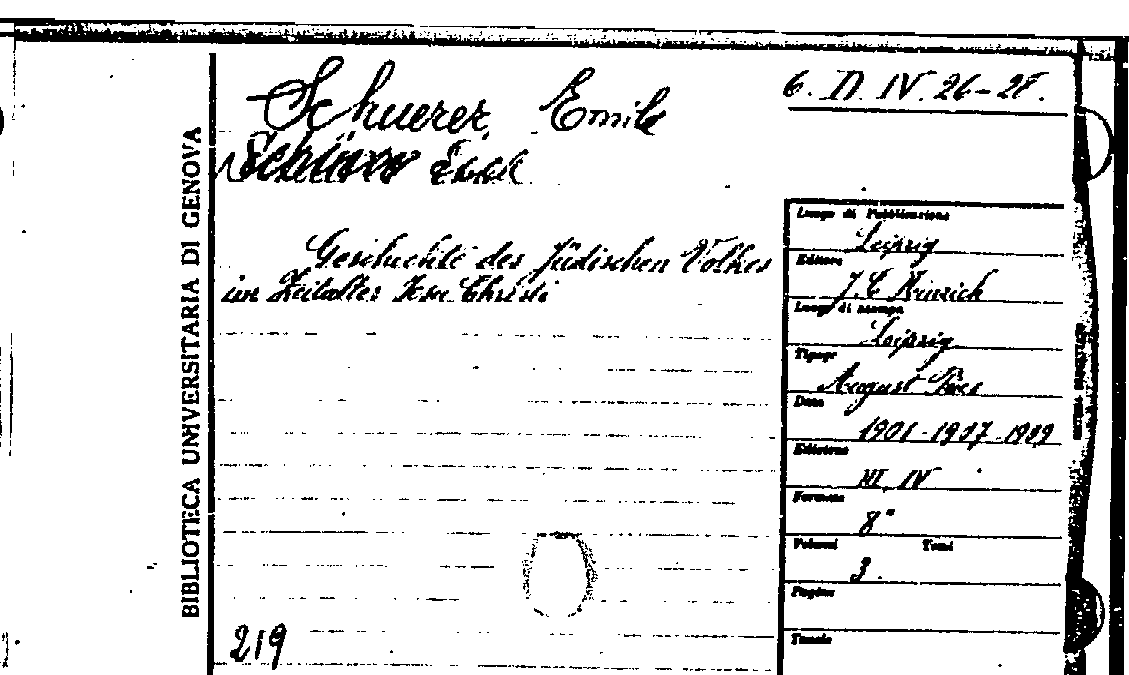 BIBLIOTECA UNIVERSITARIA DI GENOVA
Schuerer, Emile
Schürer Emil
6. D. IV. 26-28.
Geschichte des Jüdischen Volkes
im Zeitalter Jesu Christi
Luogo di Pubblicazione
Leipzig
Editore
J. C. Hinrich
Luogo di stampa
Leipzig
Tipogr
August Pries
Data
1901-1907-1909
Edizione
III, IV
Formato
8°
Volumi Tomi
3.
Pagine
Tavole
219